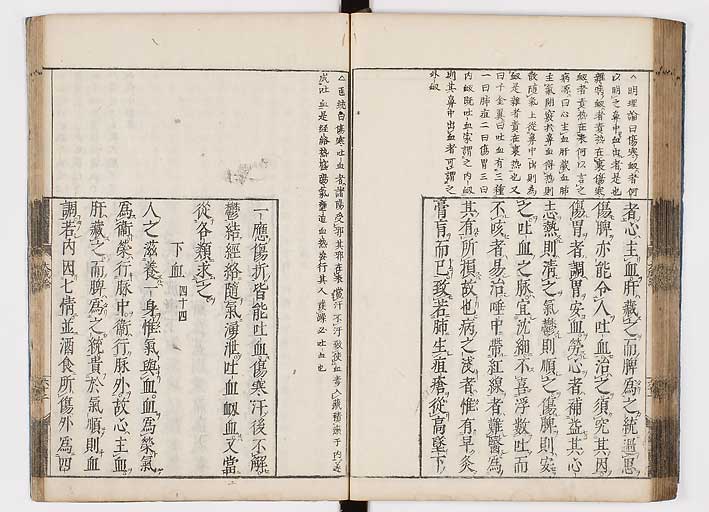 ^明理論曰傷寒衂者何
以明之鼻中血出者是也
雜病衂者責熱在裏傷寒
衂者責熱在表何以言之
病源曰心主血肝藏血肺
主氣開竅於鼻血得熱則
散隨氣上從鼻中出則為
衂是雜者責在裏熱也又
曰千金翼曰吐血有三種
一曰肺疽二曰傷胃三曰
内衂既吐血家謂之内衂
則其鼻中出血者可謂之
外衂
者心主血肝藏之而脾為之統遏思
傷脾亦能令人吐血治之須究其因
傷胃者調胃安血勞心者補益其心
志熱則清之氣鬱則順之傷脾則安
之吐血之脉宜沈細不喜浮數吐而
不咳者易治唾中帶紅線者難醫為
其有所損故也病之淺者惟有早灸
膏肓而已致若肺生疽瘡從高墜下
^醫統曰傷寒吐血者諸陽受邪其邪在表當汗不汗致使血毒入藏積瘀于内遂
成吐血是經絡熱盛陽氣擁迫血熱妄行其人
必吐血也
一應傷折皆能吐血傷寒汗後不解
鬱結經絡隨氣湧泄吐血衂血又當
從各類求之
下血 四十四
人之滋養一身惟氣與血血為榮氣
為衞榮行脉中衞行脉外故心主血
肝藏之而脾為之統貴於氣順則血
調若内因七情並酒食所傷外為四